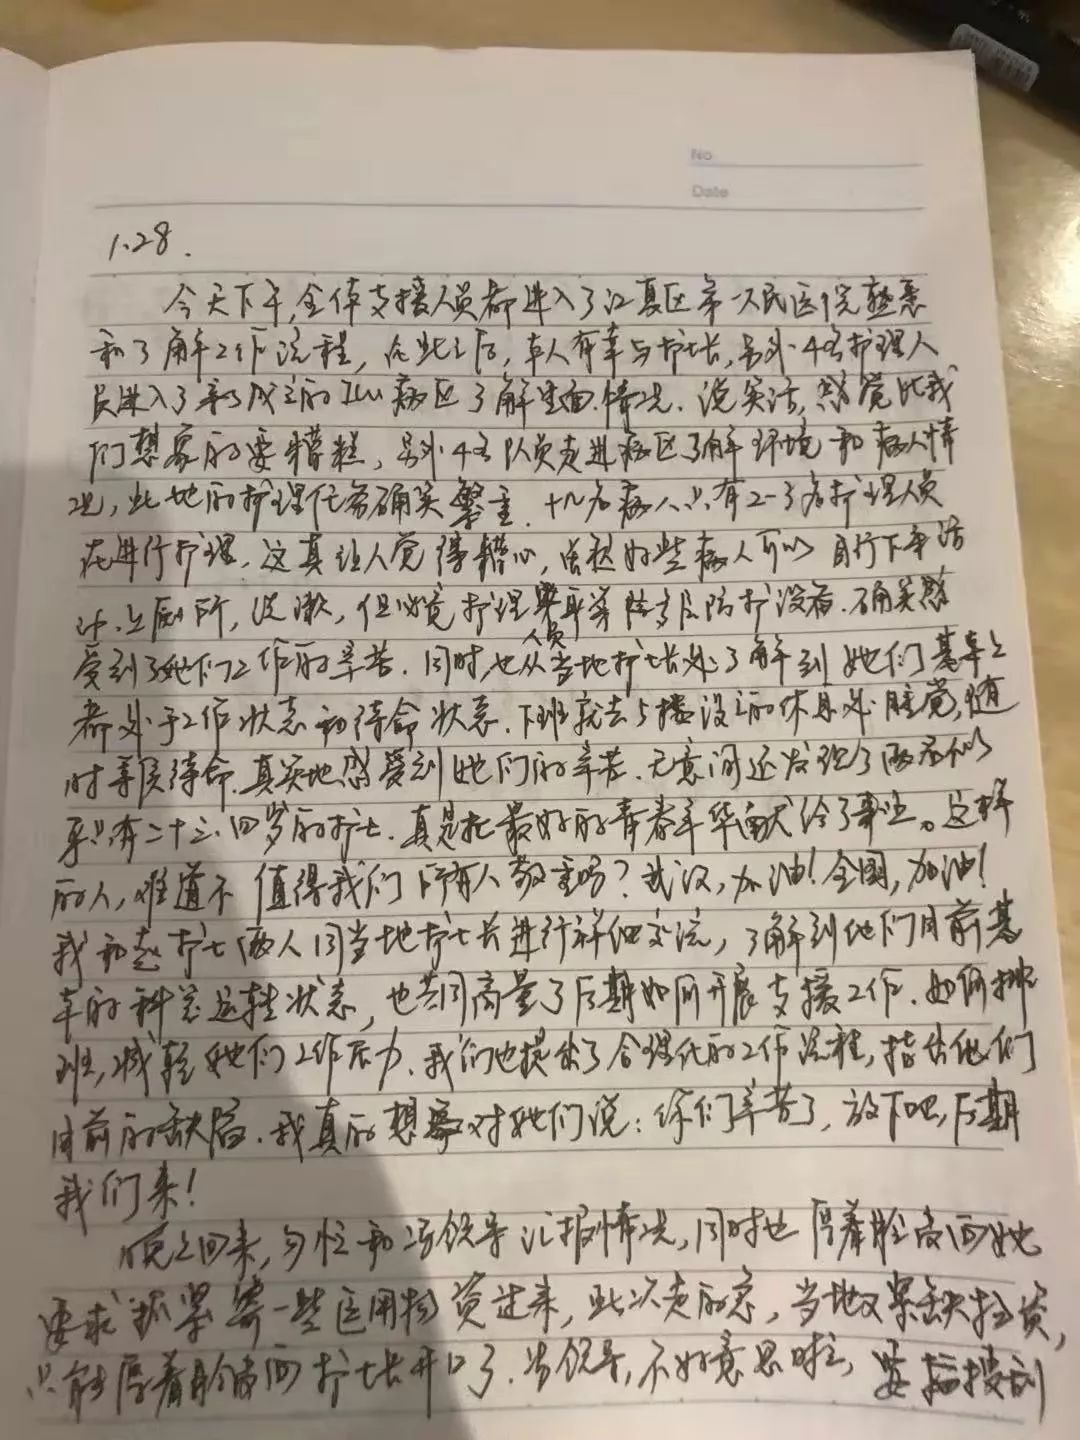 No
Date
1.28.
今天下午,全体支援人员都进入了江夏区第一人民医院熟悉
和了解工作流程,在此之后,本人有幸与护士长,另外4名护理人
员进入了新成立的ICU病区了解里面情况.说实话,感觉比我
们想象的要糟糕,另外4名队员走进病区了解环境和病人情
况,此地的护理任务确实繁重.十几名病人只有2-3名护理人员
在进行护理,这真让人觉得糟心,虽然好些病人可以自行下床活
动.上厕所,洗漱,但毕竟护理 等 防护设备.确实感
受到了她们工作的辛苦.同时,也从当地护士长处了解到她们基本上
人员
都处于工作状态和待命状态.下班就去5楼设立的休息处睡觉,随
时等候待命.真实地感受到她们的辛苦.无意间还发现了两名似
乎只有二十三、四岁的护士.真是把最好的青春年华献给了事业。这样
的人,难道不值得我们所有人敬重吗?武汉,加油!全国,加油!
我和赵护士两人同当地护士长进行详细交流,了解到他们目前基
本的科室运转状态,也共同商量了后期如何开展支援工作.如何排
班,减轻她们工作压力.我们也提出了合理化的工作流程,指出他们
目前的缺陷.我真的想对她们说:你们辛苦了,放下吧,后期
我们来!
晚上回来,匆忙和冯领导汇报情况,同时也厚着脸皮向她
要求抓紧寄一些医用物资过来,此次走的急,当地又紧缺物资,
只能厚着脸皮向护士长开口了.冯领导,不好意思啦,